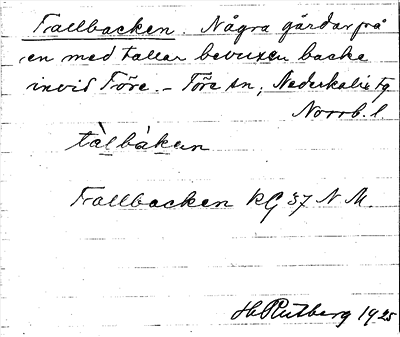 Tallbacken. Några gårdar på
en med tallar bevuxen backe
invid Töre. - Töre sn, Nederkalix tg
Norrb. l.
tàlbákan
Tallbacken RG 37 N M.
H. Rutberg 1925